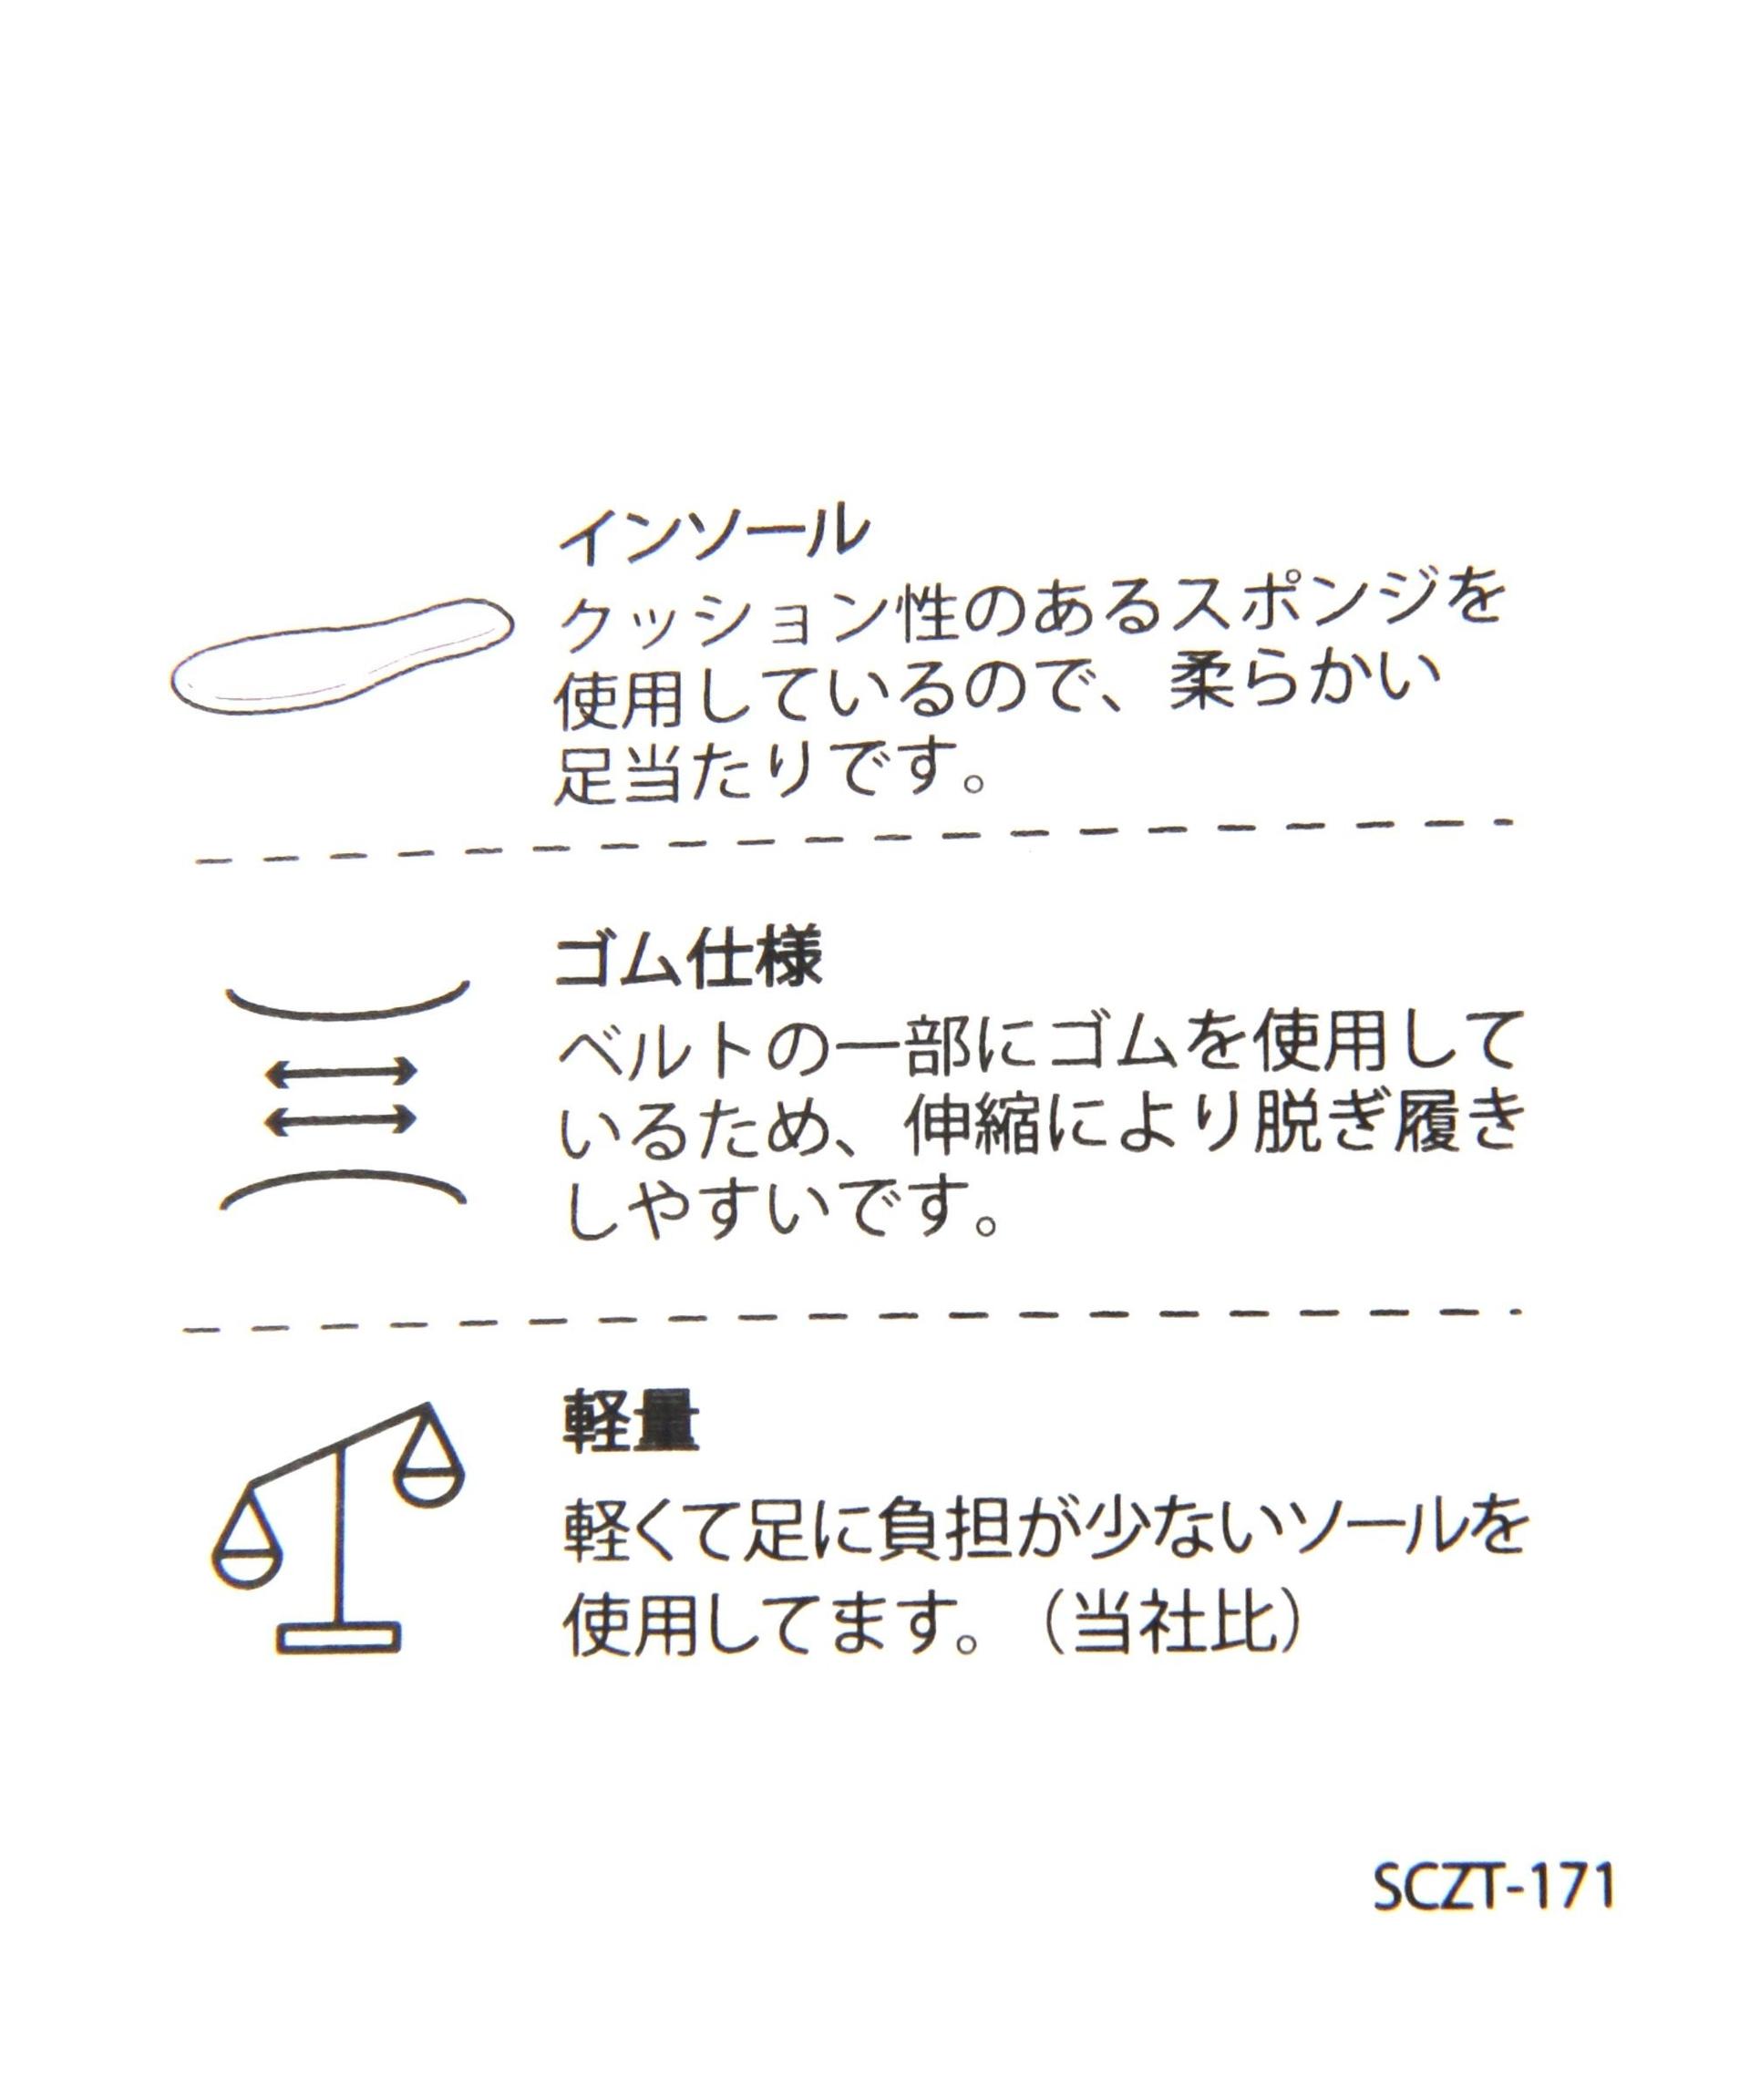 インソール
クッション性のあるスポンジを
使用しているので、柔らかい
足当たりです。
ゴム仕様
ベルトの一部にゴムを使用して
いるため、伸縮により脱ぎ履き
しやすいです。
軽量
軽くて足に負担が少ないソールを
使用してます。（当社比）
SCZT-171